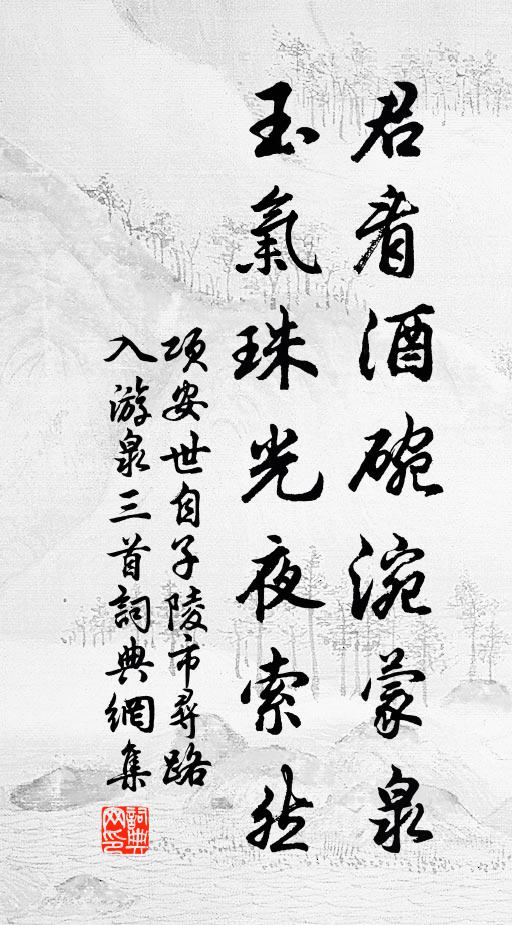 君看酒碗涴蒙泉
玉氣珠光夜索然
項安世自子陵市尋路
入游泉三首詞典網集
詞典網印